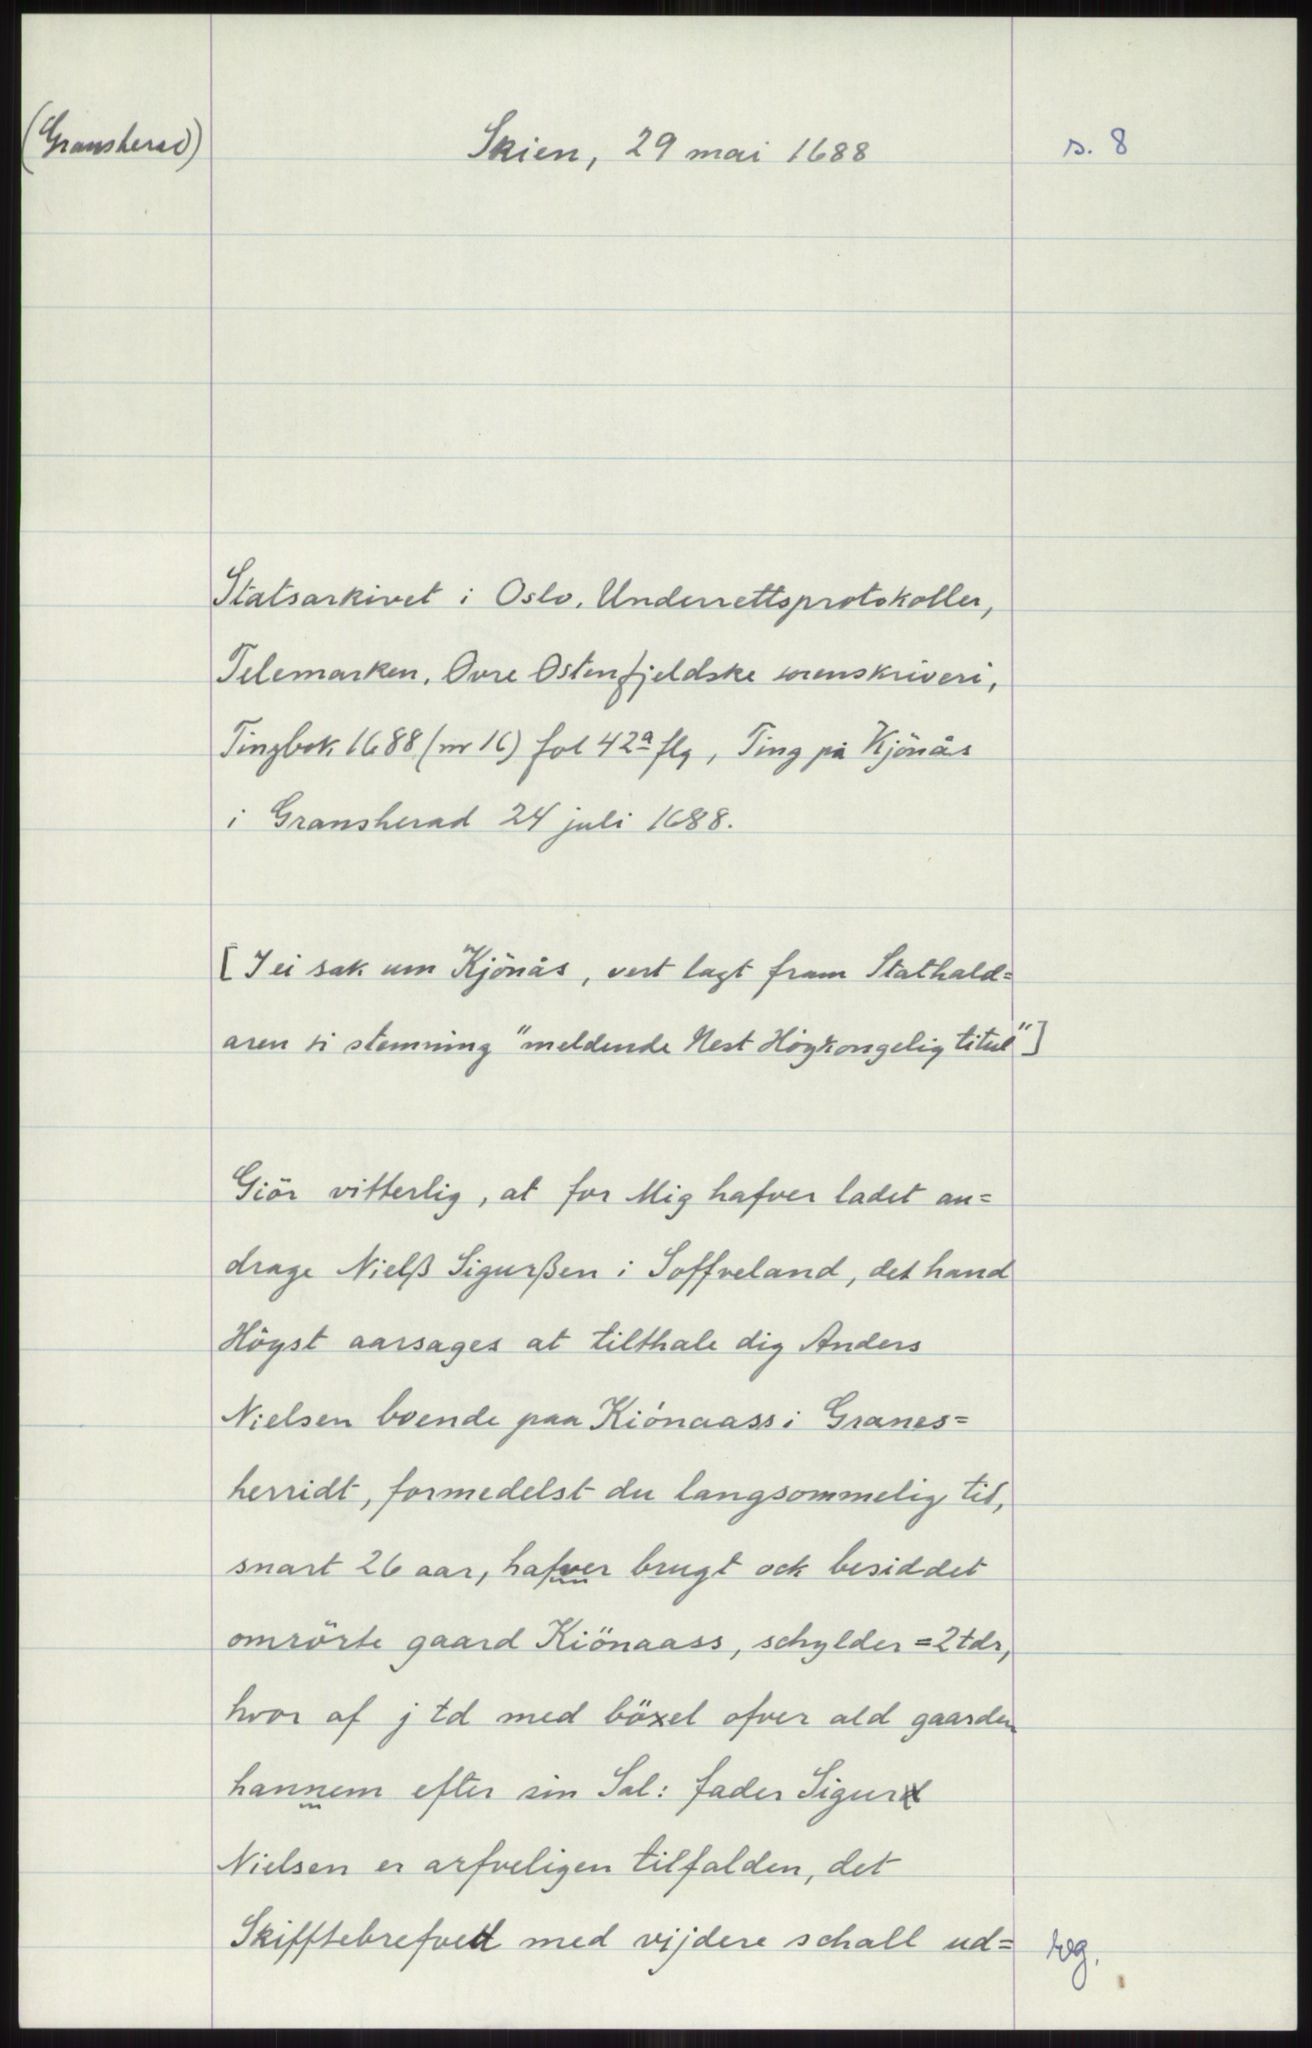 (Gransherad)
Skien, 29 mai 1688
s. 8
Statsarkivet i Oslo. Underrettsprotokoller,
Telemarken. Øvre Østenfjeldske sorenskriveri,
Tingbok 1688 (nr 16) fol 42a flg, Ting på Kjönås
i Gransherad 24 juli 1688.
[I ei sak um Kjönås, vert lagt fram Stathald=
aren si stemning "meldende Nest Högkongelig titul"]
Giör vitterlig, at for Mig hafver ladet an=
drage Nielß Sigurßen i Soffveland, det hand
Högst aarsages at tilthale dig Anders
Nielsen boende paa Kiönaass i Granes=
herridt, formedelst du langsommelig tid,
snart 26 aar, hafver brugt ock besiddet
omrörte gaard Kiönaass, schylder =2 tdr,
hvor af j td med böxel ofver ald gaarden
hannem efter sin Sal: fader Sigurd
Nielsen er arfveligen tilfalden, det
Skifftebrefved med vijdere schall ud=
reg.